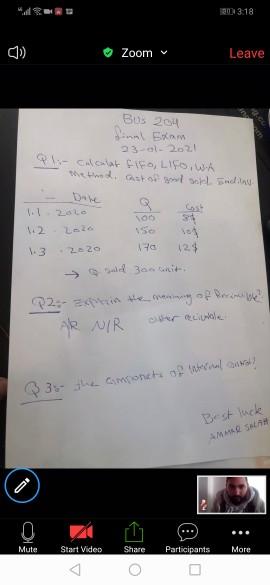 3:18
Zoom
Leave
BUS 204
final Exam
23-01-2021
Q1:- Calculat FIFO, LIFO, W.A
Method. Cost of good sold. End inv.
Date Q Cost
1.1.2020 100 8$
1.2.2020 150 10$
1.3.2020 170 12$
→ Q. sold 300 unit.
Q2:- Explain the meaning of
A/R N/R other
Q3:- the componets of internal control?
Best luck
AMMAR
Mute
Start Video
Share
Participants
More